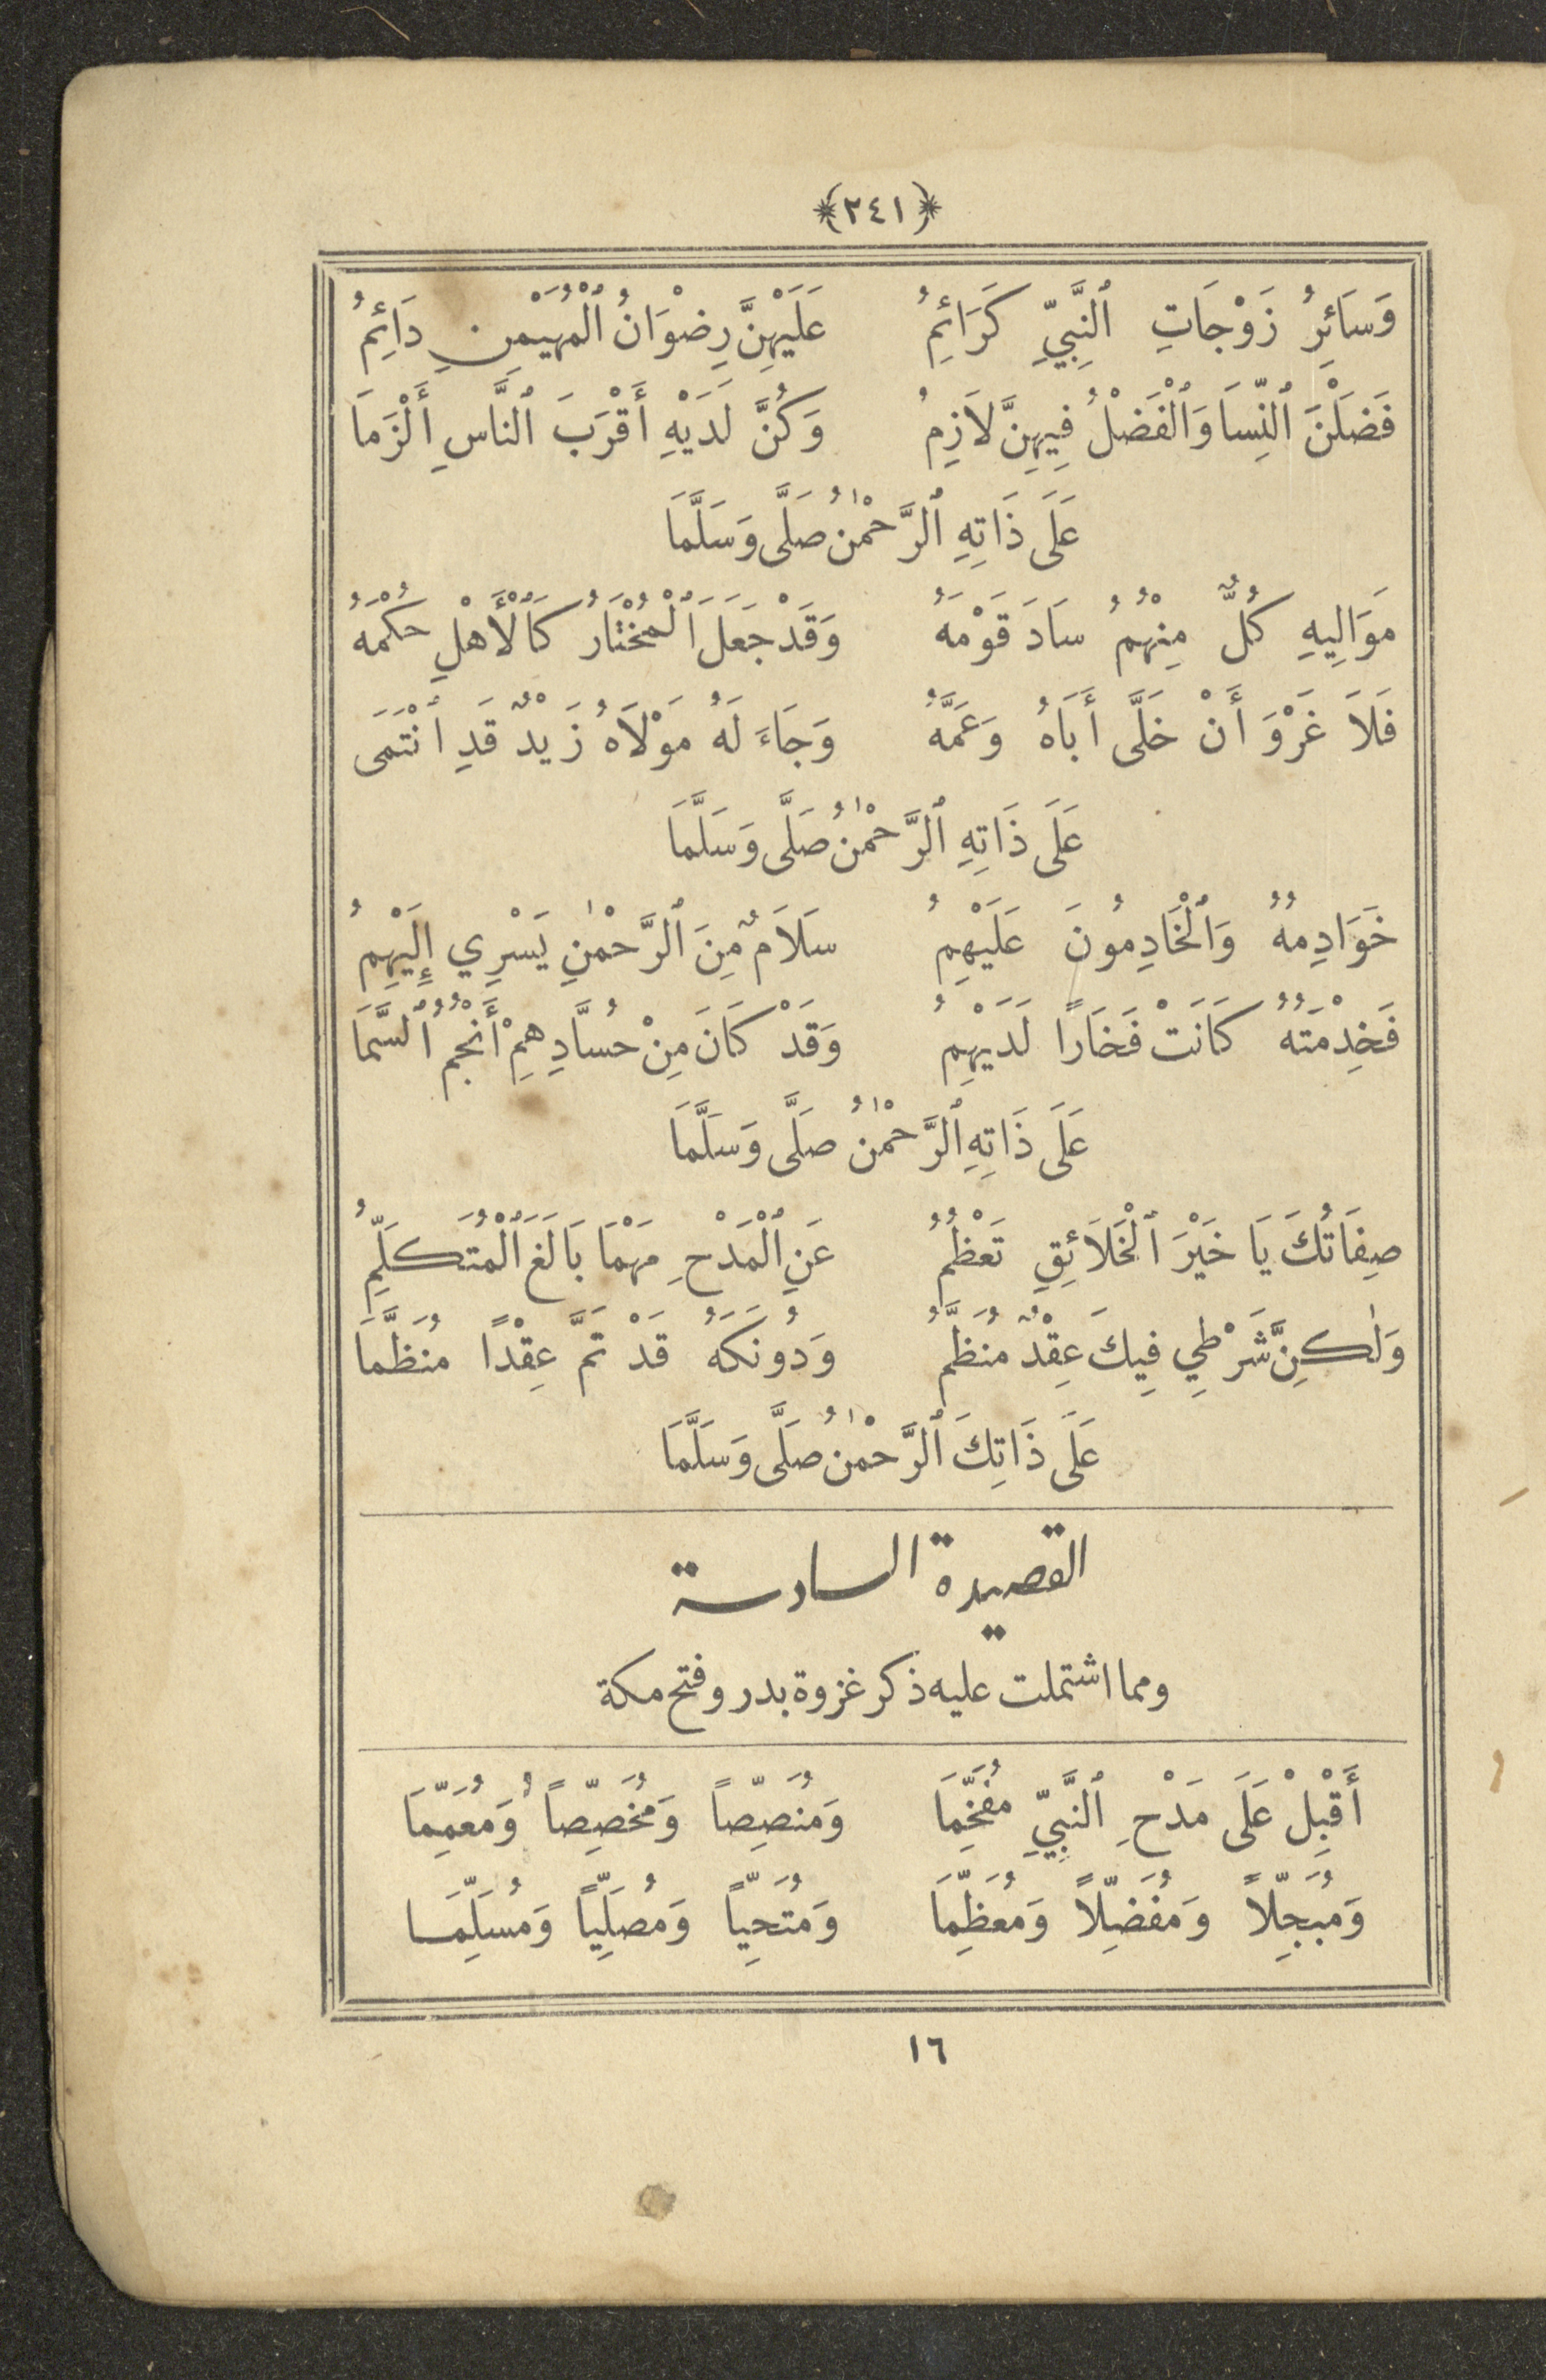 ﴿٢٤١﴾
وَسَائِرُ زَوْجَاتِ ٱلنَّبِيِّ كَرَائِمُ عَلَيْهِنَّ رِضْوَانُ ٱلْمُهَيْمِنِ دَائِمُ
فَضَلْنَ ٱلنِّسَا وَٱلْفَضْلُ فِيهِنَّ لَازِمُ وَكُنَّ لَدَيْهِ أَقْرَبَ ٱلنَّاسِ أَلْزَمَا
عَلَى ذَاتِهِ ٱلرَّحْمٰنُ صَلَّى وَسَلَّمَا
مَوَالِيهِ كُلٌّ مِنْهُمُ سَادَ قَوْمَهُ وَقَدْ جَعَلَ ٱلْمُخْتَارُ كَٱلْأَهْلِ حُكْمَهُ
فَلَا غَرْوَ أَنْ خَلَّى أَبَاهُ وَعَمَّهُ وَجَاءَ لَهُ مَوْلَاهُ زَيْدٌ قَدِ ٱنْتَمَى
عَلَى ذَاتِهِ ٱلرَّحْمٰنُ صَلَّى وَسَلَّمَا
خَوَادِمُهُ وَٱلْخَادِمُونَ عَلَيْهِمُ سَلَامٌ مِنَ ٱلرَّحْمٰنِ يَسْرِي إِلَيْهِمُ
فَخِدْمَتُهُ كَانَتْ فَخَارًا لَدَيْهِمُ وَقَدْ كَانَ مِنْ حُسَّادِهِمْ أَنْجُمُ ٱلسَّمَا
عَلَى ذَاتِهِ ٱلرَّحْمٰنُ صَلَّى وَسَلَّمَا
صِفَاتُكَ يَا خَيْرَ ٱلْخَلَائِقِ تَعْظُمُ عَنِ ٱلْمَدْحِ مَهْمَا بَالَغَ ٱلْمُتَكَلِّمُ
وَلٰكِنَّ شَرْطِي فِيكَ عِقْدٌ مُنَظَّمُ وَدُونَكَهُ قَدْ تَمَّ عِقْدًا مُنَظَّمَا
عَلَى ذَاتِكَ ٱلرَّحْمٰنُ صَلَّى وَسَلَّمَا
القصيدة السادسة
ومما اشتملت عليه ذكر غزوة بدر وفتح مكة
أَقْبِلْ عَلَى مَدْحِ ٱلنَّبِيِّ مُفَخِّمَا وَمُنَصِّصاً وَمُخَصِّصاً وَمُعَمِّمَا
وَمُبَجِّلاً وَمُفَضِّلاً وَمُعَظِّمَا وَمُتَحِيّاً وَمُصَلِّيّاً وَمُسَلِّمَا
١٦